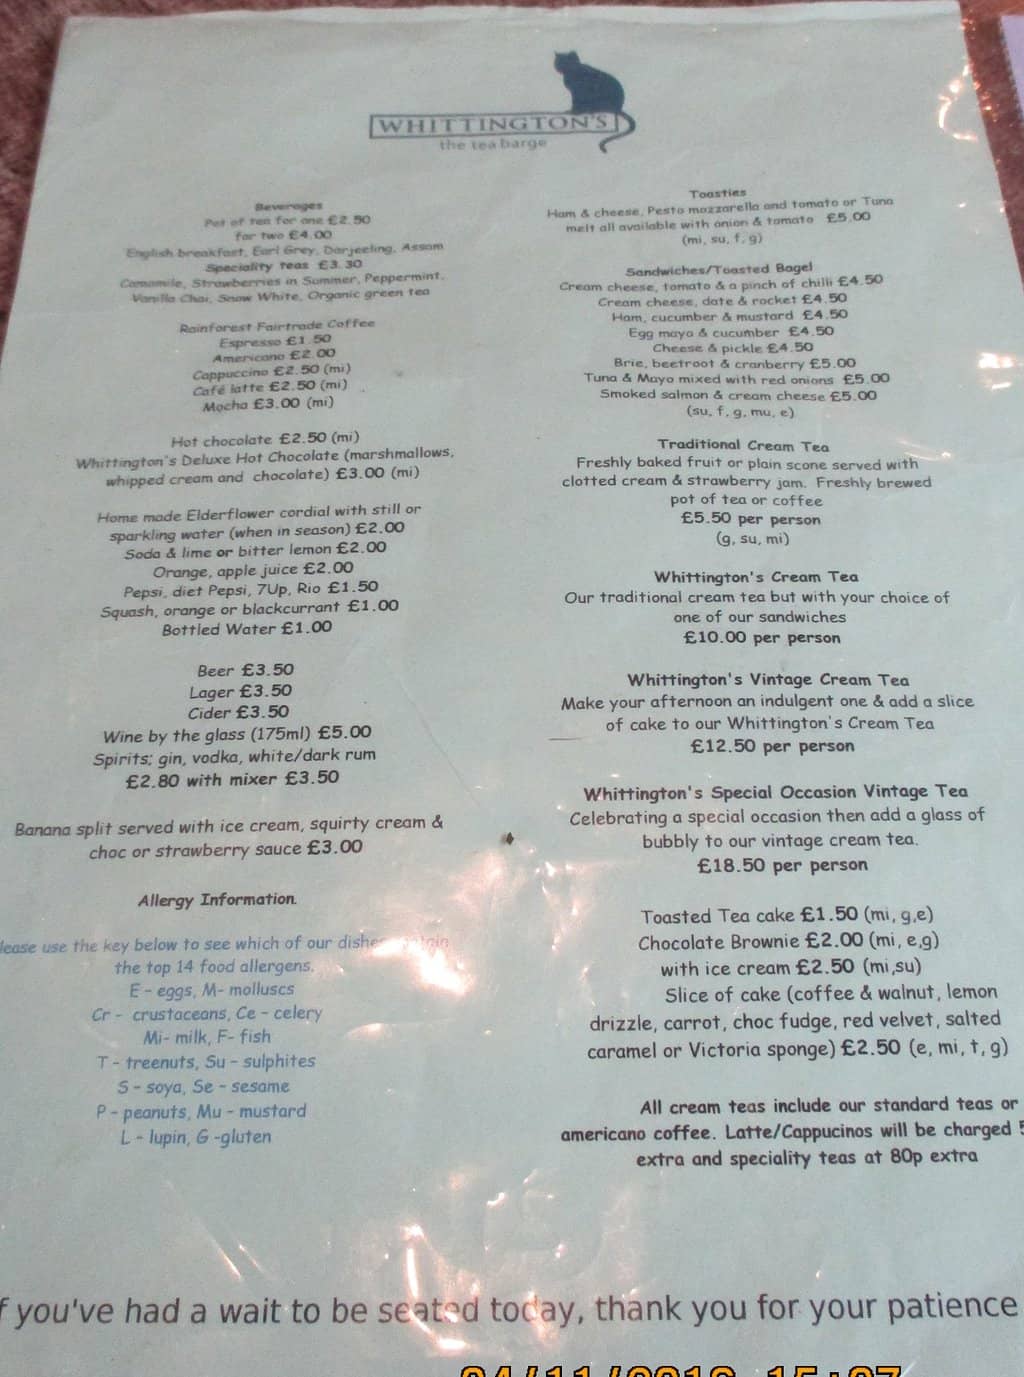 WHITTINGTON'S
the tea barge
Beverages
Pot of tea for one £2.50
for two £4.00
English breakfast, Earl Grey, Darjeeling, Assam
Speciality teas £3.30
Camomile, Strawberries in Summer, Peppermint,
Vanilla Chai, Snow White, Organic green tea
Rainforest Fairtrade Coffee
Espresso £1.50
Americano £2.00
Cappuccino £2.50 (mi)
Café latte £2.50 (mi)
Mocha £3.00 (mi)
Hot chocolate £2.50 (mi)
Whittington's Deluxe Hot Chocolate (marshmallows,
whipped cream and chocolate) £3.00 (mi)
Home made Elderflower cordial with still or
sparkling water (when in season) £2.00
Soda & lime or bitter lemon £2.00
Orange, apple juice £2.00
Pepsi, diet Pepsi, 7Up, Rio £1.50
Squash, orange or blackcurrant £1.00
Bottled Water £1.00
Beer £3.50
Lager £3.50
Cider £3.50
Wine by the glass (175ml) £5.00
Spirits; gin, vodka, white/dark rum
£2.80 with mixer £3.50
Banana split served with ice cream, squirty cream &
choc or strawberry sauce £3.00
Allergy Information.
lease use the key below to see which of our dishes contain
the top 14 food allergens.
E - eggs, M- molluscs
Cr - crustaceans, Ce - celery
Mi- milk, F- fish
T - treenuts, Su - sulphites
S - soya, Se - sesame
P - peanuts, Mu - mustard
L - lupin, G -gluten
Toasties
Ham & cheese, Pesto mozzarella and tomato or Tuna
melt all available with onion & tomato £5.00
(mi, su, f, g)
Sandwiches/Toasted Bagel
Cream cheese, tomato & a pinch of chilli £4.50
Cream cheese, date & rocket £4.50
Ham, cucumber & mustard £4.50
Egg mayo & cucumber £4.50
Cheese & pickle £4.50
Brie, beetroot & cranberry £5.00
Tuna & Mayo mixed with red onions £5.00
Smoked salmon & cream cheese £5.00
(su, f, g, mu, e)
Traditional Cream Tea
Freshly baked fruit or plain scone served with
clotted cream & strawberry jam. Freshly brewed
pot of tea or coffee
£5.50 per person
(g, su, mi)
Whittington's Cream Tea
Our traditional cream tea but with your choice of
one of our sandwiches
£10.00 per person
Whittington's Vintage Cream Tea
Make your afternoon an indulgent one & add a slice
of cake to our Whittington's Cream Tea
£12.50 per person
Whittington's Special Occasion Vintage Tea
Celebrating a special occasion then add a glass of
bubbly to our vintage cream tea.
£18.50 per person
Toasted Tea cake £1.50 (mi, g,e)
Chocolate Brownie £2.00 (mi, e,g)
with ice cream £2.50 (mi,su)
Slice of cake (coffee & walnut, lemon
drizzle, carrot, choc fudge, red velvet, salted
caramel or Victoria sponge) £2.50 (e, mi, t, g)
All cream teas include our standard teas or
americano coffee. Latte/Cappucinos will be charged 5
extra and speciality teas at 80p extra
f you've had a wait to be seated today, thank you for your patience